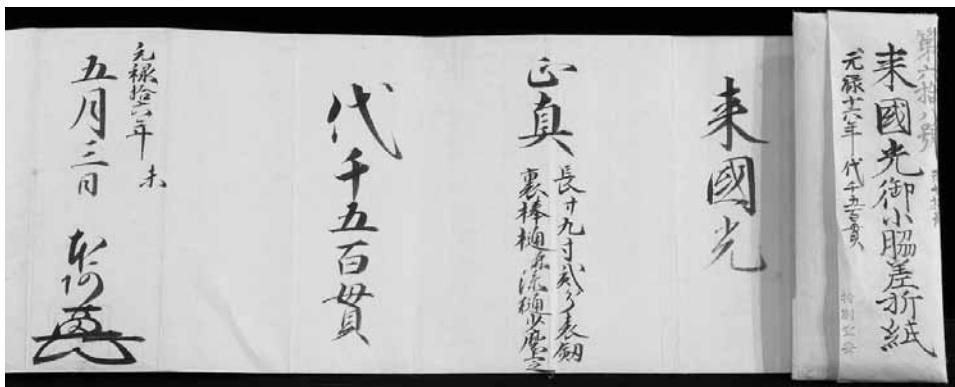 第六拾八号
来國光御小脇差折紙
元禄十六年 代千五百貫
来國光
正真
長サ九寸弐分表剱
裏棒樋流樋少磨之
代千五百貫
元禄拾六年 未
五月三日
本阿